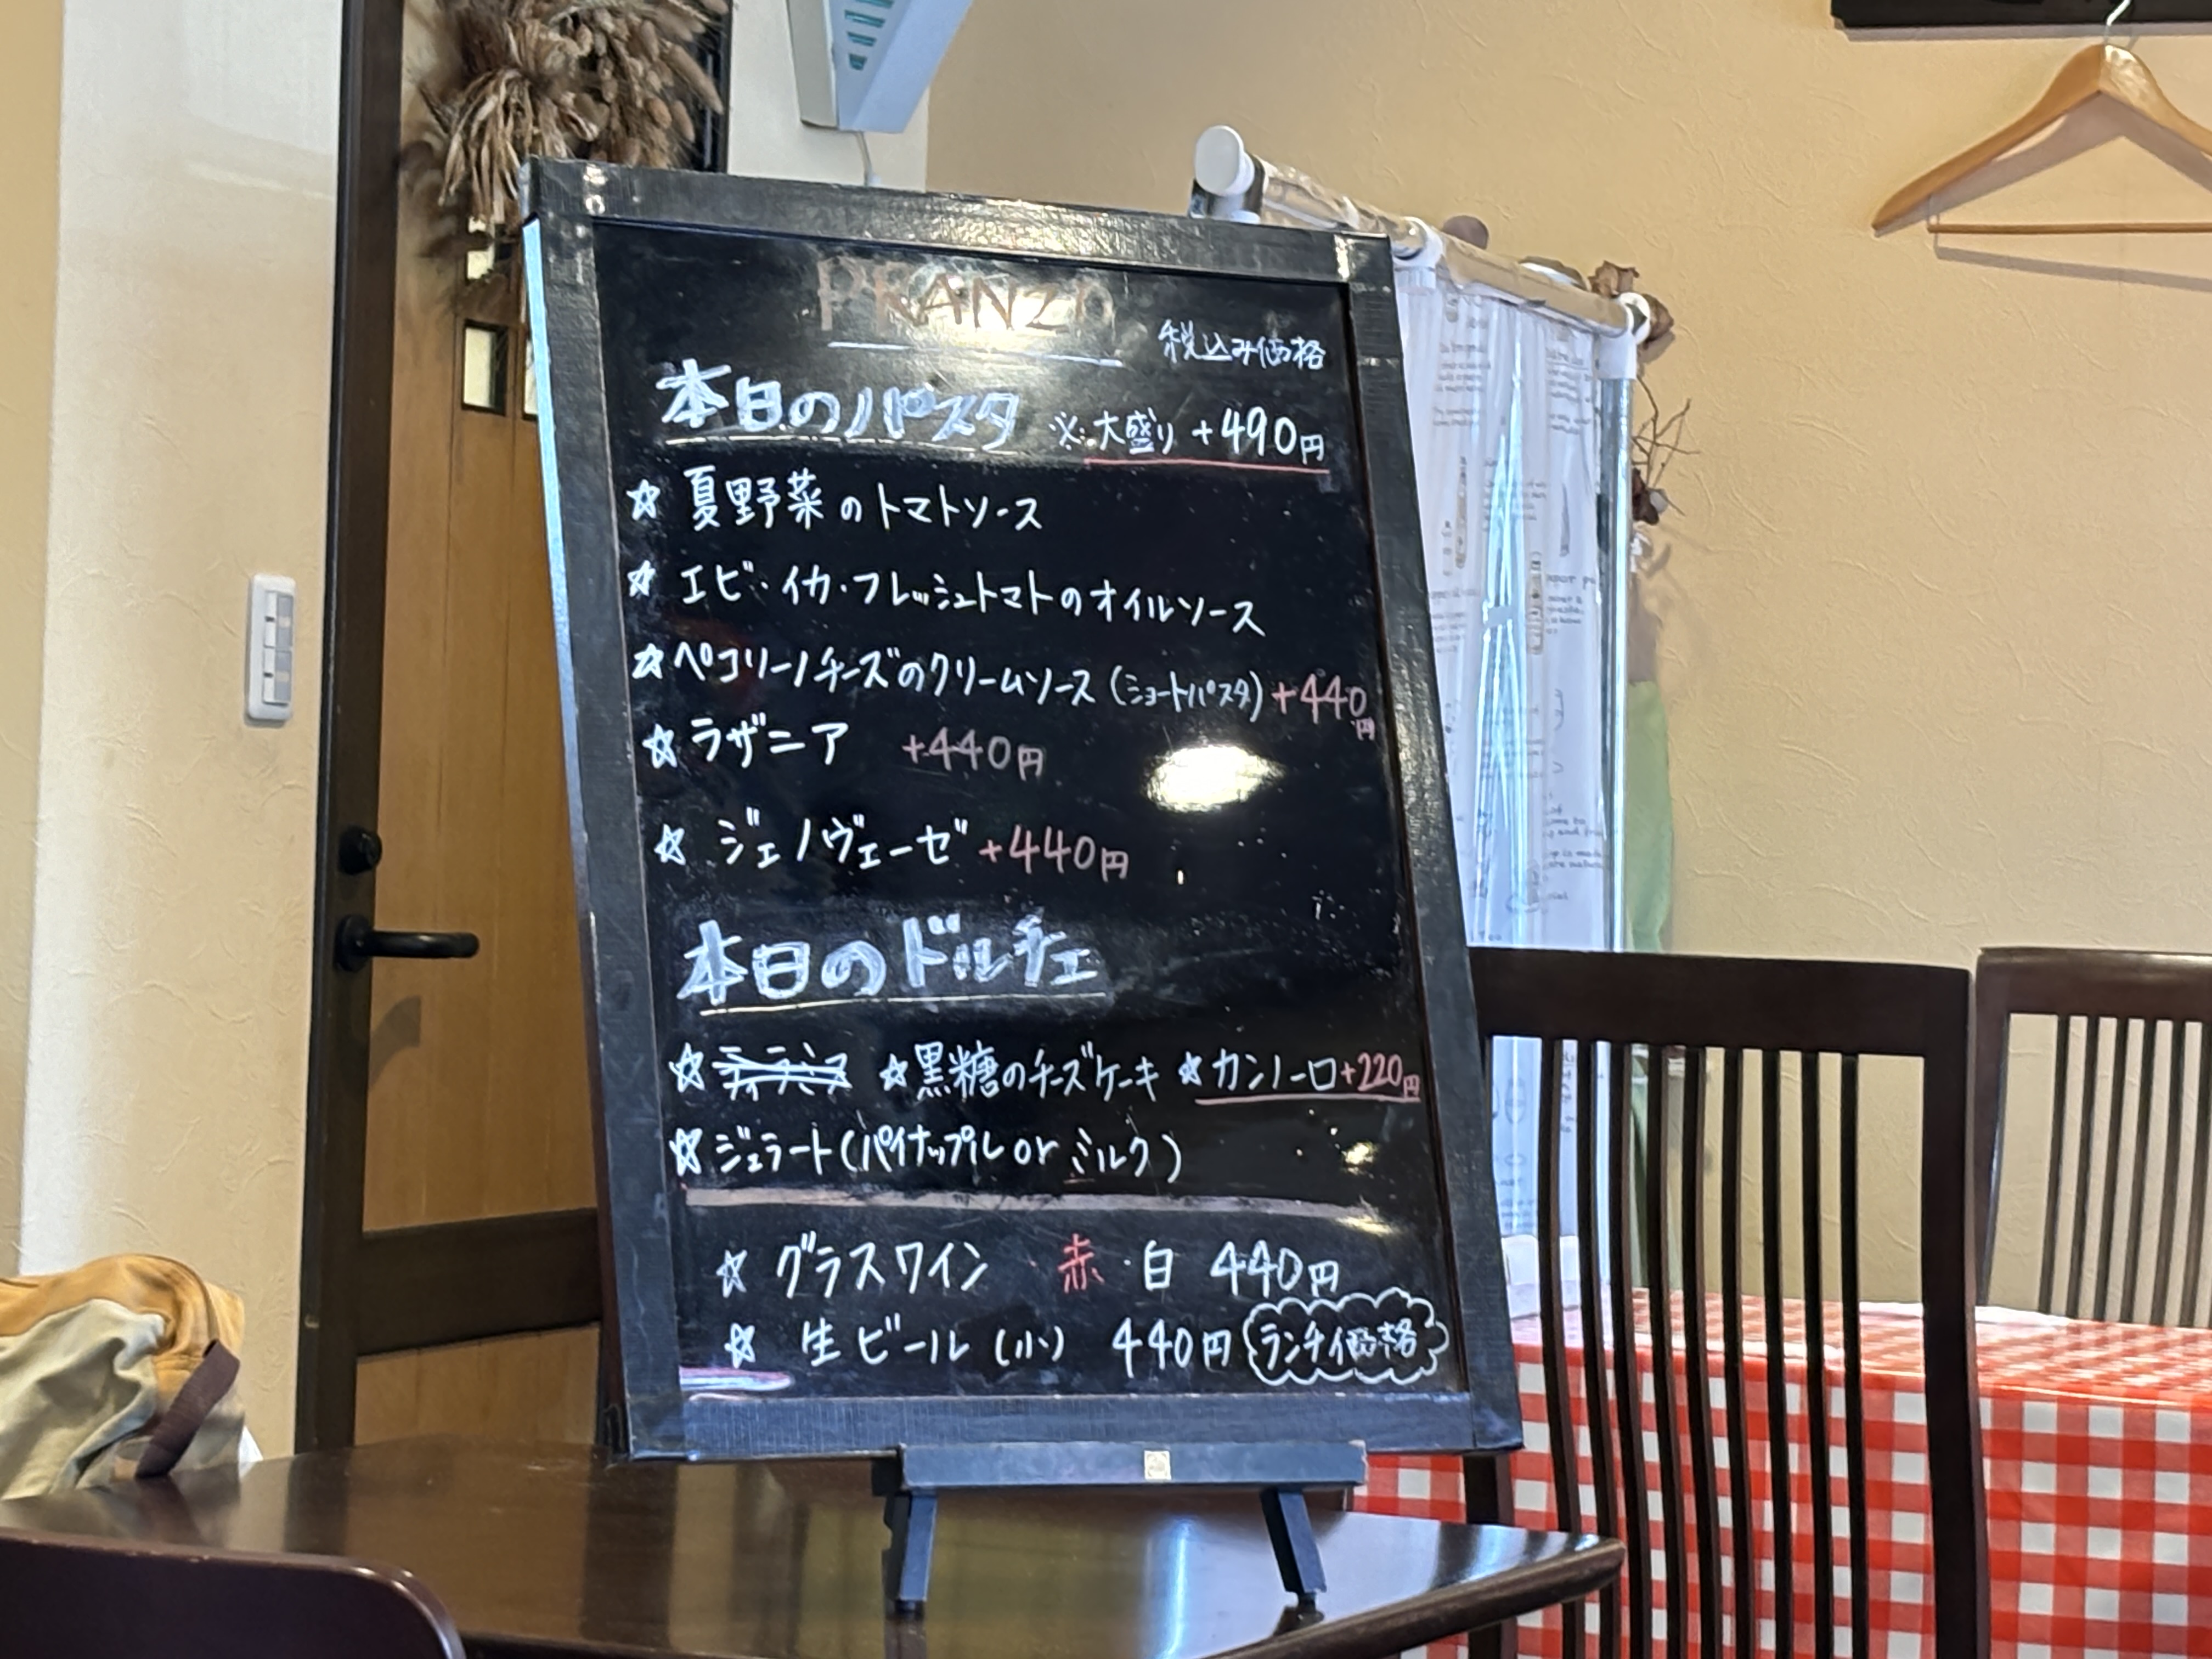 PRANZO
税込み価格
本日のパスタ ※大盛り +490円
☆ 夏野菜のトマトソース
☆ エビ・イカ・フレッシュトマトのオイルソース
☆ ペコリーノチーズのクリームソース (ショートパスタ) +440円
☆ ラザニア +440円
☆ ジェノヴェーゼ +440円
本日のドルチェ
☆ ティラミス ☆ 黒糖のチーズケーキ ☆ カンノーロ+220円
☆ ジェラート(パイナップル or ミルク)
☆ グラスワイン 赤・白 440円
☆ 生ビール (小) 440円 ランチ価格